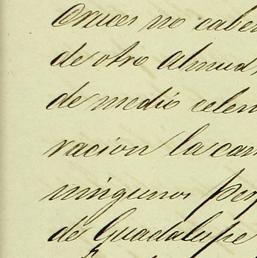 Cruces no caben
de otro Almud,
de medio celem
racion la can
ningunos per
de Guadalupe